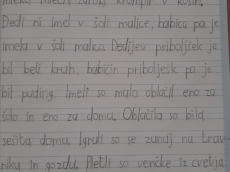 mleko, krompir v kosih.
Dedi ni imel v šoli malice, babica pa je
imela v šoli malico. Dedijev priboljšek je
bil beli kruh, babičin priboljšek pa je
bil puding. Imeli so malo oblačil eno za
šolo in eno za doma. Oblačila so bila
sešita doma. Igrali so se zunaj na trav-
niku in gozdu. Pletli so venčke iz cvetja.